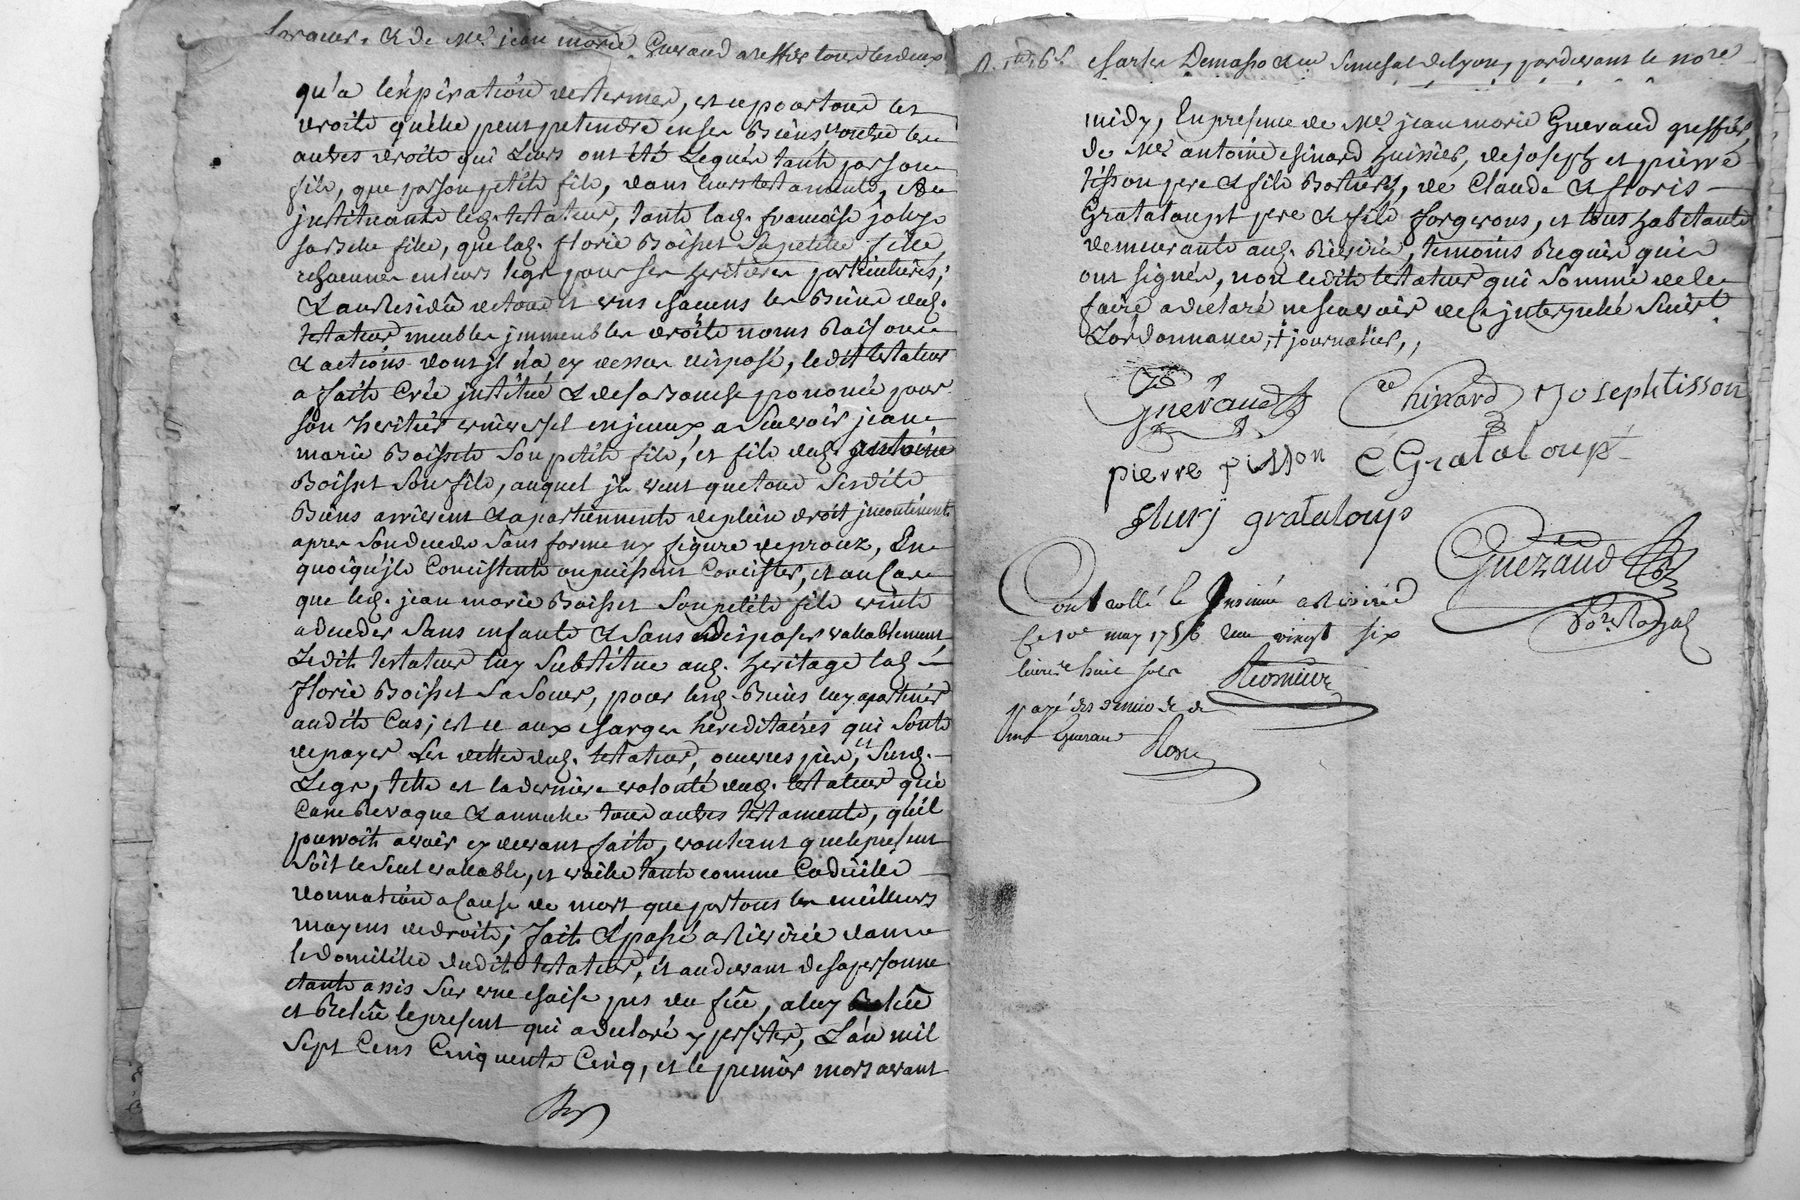 & de Me. jean marie Gueraud greffier tous les deux
qu'a lexpiration desd. termes, et ce pour tous les
droits qu'elle peut pretendre en ses Biens, outre les
autres droits qui Leurs ont été Legués tant par son
fils, que par son petit fils, dans leurs testaments,
jnstituant led. testateur, tant lad. francoise
sa Belle fille, que lad. florie Boisset sa petite fille,
chacunes en leurs legs pour ses heritieres particulieres;
& au Residû de tous et uns chacuns les Biens dud.
testateur meubles jmmeubles droits noms Raisons
& actions dont jl n'a cy dessus disposé, ledit testateur
a fait Créé jnstitué & de sa Bouche prononcé pour
son heritier universel en jceux a scavoir jean
marie Boisset son petit fils, et fils dud. antoine
Boisset son fils, auquel jl veut que tous sesdits
Biens arrivent & apartiennent de plein droit jncontinent
apres son deceds sans forme ny figure de procez, En
quoi qu'jls Consistent ou puissent Consister, et au Cas
que led. jean marie Boisset son petit fils vint
a deceder sans enfants & sans disposer vallablement
Ledit testateur luy substitue aud. heritage lad.
florie Boisset sa soeur, pour lesd. Biens luy apartenir
audit Cas; et ce aux charges hereditaires qui sont
de payer Les dettes dud. testateur, oeuvres pies, et susd.
Legs, telle est la derniere volonté dud. testateur qui
Casse Revoque & annulle tous autres testaments, qu'il
pourroit avoir cy devant faits, voulant que le present
soit le seul vallable, et vaille tant comme Codicille
donnation a Cause de mort que par tous les meilleurs
moyens de droit; fait & passé a Riverie dans
le domicille dudit testateur, et au devant de sa personne
etant assis sur une chaise pres du feu, a luy Leû
et Releû le present qui a declaré y persister, L'an mil
sept Cens Cinquante Cinq, et le premier mars avant
charles Demasso Senechal de Lyon, pardevant le nore
midy, En presence de Me. jean marie Gueraud greffier,
de Me. antoine chinard huissier, de joseph et pierre
tisson pere & fils, de Claude & floris
Grataloupt pere & fils forgerons, et tous habitants
demeurants aud. Riverie, temoins Requis qui
ont signés, non ledit testateur qui sommé de le
faire a declaré ne scavoir de ce jnterpellé suivt.
L'ordonnance, + journalier,,
Gueraud Chinard Joseph tisson
pierre tisson C Grataloupt
flurj grataloup
Gueraud
Nore Royal
Controllé & Insinué a Riverie
Le 10e may 1756 Reçu vingt six
livres huit sols
payé des deniers de
me Gueraud